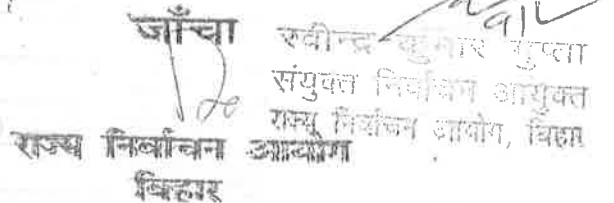 जाँचा
रवीन्द्र कुमार गुप्ता
संयुक्त निर्वाचन आयुक्त
राज्य निर्वाचन आयोग, बिहार
राज्य निर्वाचन आयोग
बिहार